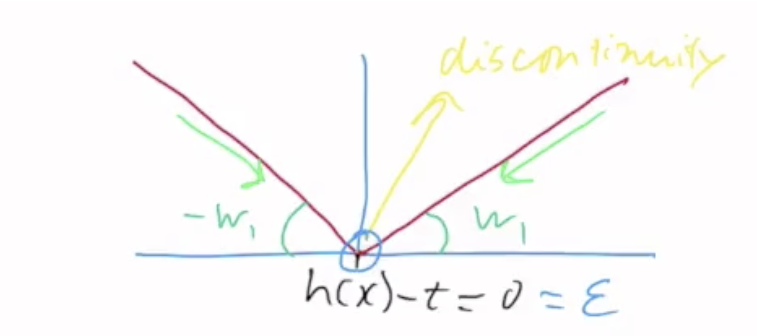 discontinuity
-w₁ w₁
h(x)-t=0=ε